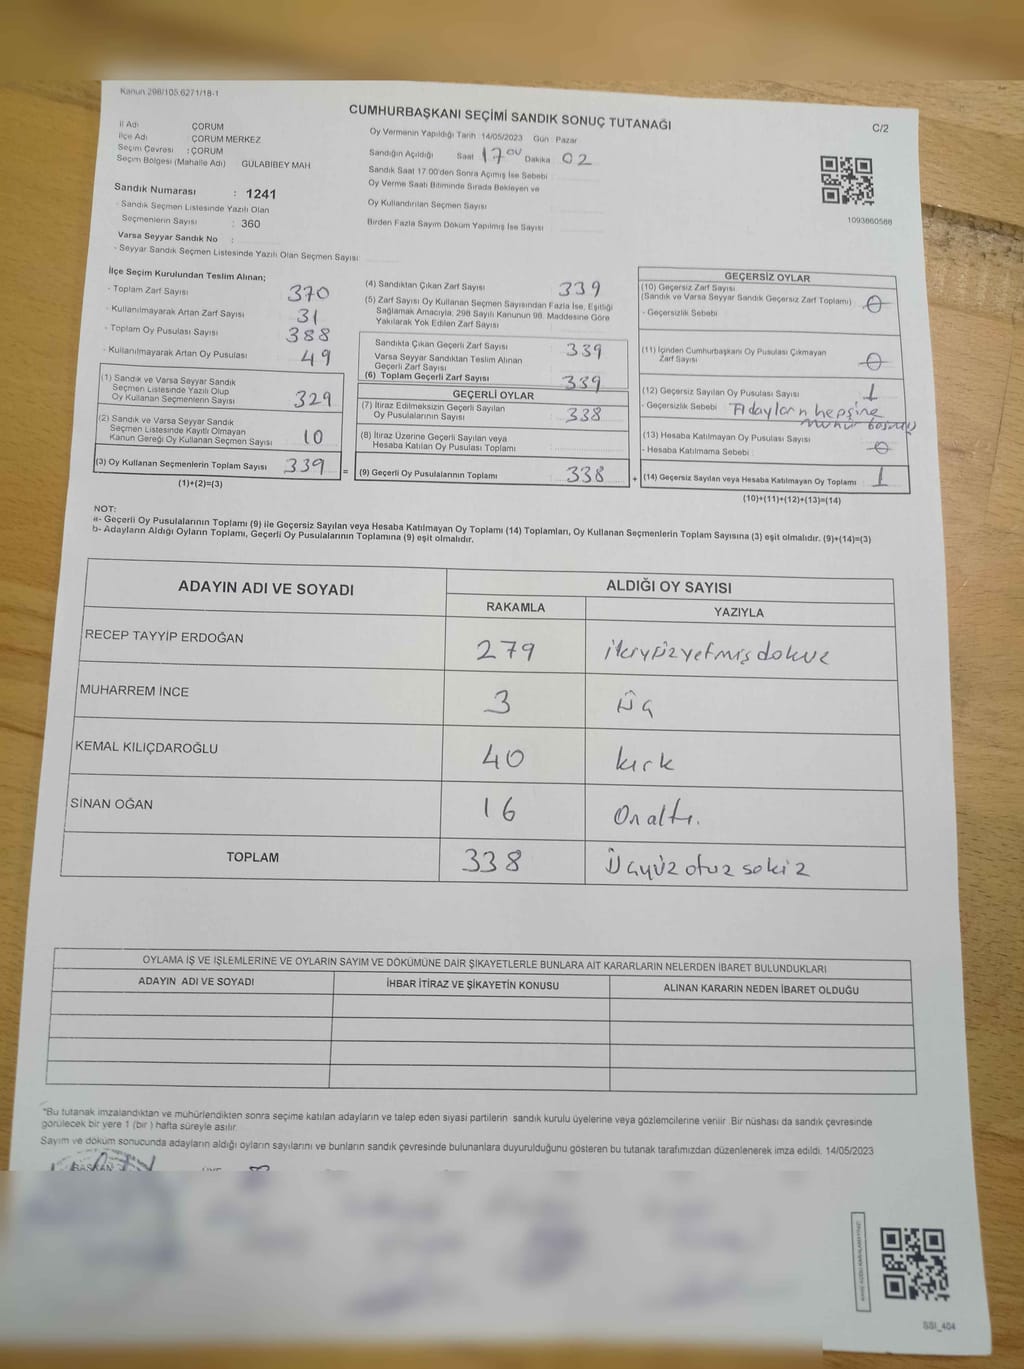 Kanun 298/105 6271/18-1
CUMHURBAŞKANI SEÇİMİ SANDIK SONUÇ TUTANAĞI
C/2
İl Adı ÇORUM
İlçe Adı ÇORUM MERKEZ
Seçim Çevresi : ÇORUM
Seçim Bölgesi (Mahalle Adı) GÜLABİBEY MAH
Sandık Numarası : 1241
- Sandık Seçmen Listesinde Yazılı Olan
Seçmenlerin Sayısı : 360
Varsa Seyyar Sandık No :
- Seyyar Sandık Seçmen Listesinde Yazılı Olan Seçmen Sayısı:
Oy Vermenin Yapıldığı Tarih 14/05/2023 Gün Pazar
Sandığın Açıldığı Saat 17 00 Dakika 02
Sandık Saat 17.00'den Sonra Açımış İse Sebebi
Oy Verme Saati Bitiminde Sırada Bekleyen ve
Oy Kullandırılan Seçmen Sayısı
Birden Fazla Sayım Döküm Yapılmış İse Sayısı
1093660566
İlçe Seçim Kurulundan Teslim Alınan;
- Toplam Zarf Sayısı 370
- Kullanılmayarak Artan Zarf Sayısı 31
- Toplam Oy Pusulası Sayısı 388
- Kullanılmayarak Artan Oy Pusulası 49
(1) Sandık ve Varsa Seyyar Sandık
Seçmen Listesinde Yazılı Olup
Oy Kullanan Seçmenlerin Sayısı 329
(2) Sandık ve Varsa Seyyar Sandık
Seçmen Listesinde Kayıtlı Olmayan
Kanun Gereği Oy Kullanan Seçmen Sayısı 10
(3) Oy Kullanan Seçmenlerin Toplam Sayısı 339 =
(1)+(2)=(3)
(4) Sandıktan Çıkan Zarf Sayısı 339
(5) Zarf Sayısı Oy Kullanan Seçmen Sayısından Fazla İse, Eşitliği
Sağlamak Amacıyla; 298 Sayılı Kanunun 98. Maddesine Göre
Yakılarak Yok Edilen Zarf Sayısı
Sandıkta Çıkan Geçerli Zarf Sayısı 339
Varsa Seyyar Sandıktan Teslim Alınan
Geçerli Zarf Sayısı
(6) Toplam Geçerli Zarf Sayısı 339
GEÇERLİ OYLAR
(7) İtiraz Edilmeksizin Geçerli Sayılan
Oy Pusulalarının Sayısı 338
(8) İtiraz Üzerine Geçerli Sayılan veya
Hesaba Katılan Oy Pusulası Toplamı
(9) Geçerli Oy Pusulalarının Toplamı 338 +
GEÇERSİZ OYLAR
(10) Geçersiz Zarf Sayısı
(Sandık ve Varsa Seyyar Sandık Geçersiz Zarf Toplamı) 0
- Geçersizlik Sebebi
(11) İçinden Cumhurbaşkanı Oy Pusulası Çıkmayan
Zarf Sayısı 0
(12) Geçersiz Sayılan Oy Pusulası Sayısı 1
- Geçersizlik Sebebi Adayların hepsine
mühür basmış
(13) Hesaba Katılmayan Oy Pusulası Sayısı 0
- Hesaba Katılmama Sebebi
(14) Geçersiz Sayılan veya Hesaba Katılmayan Oy Toplamı 1
(10)+(11)+(12)+(13)=(14)
NOT:
a- Geçerli Oy Pusulalarının Toplamı (9) ile Geçersiz Sayılan veya Hesaba Katılmayan Oy Toplamı (14) Toplamları, Oy Kullanan Seçmenlerin Toplam Sayısına (3) eşit olmalıdır. (9)+(14)=(3)
b- Adayların Aldığı Oyların Toplamı, Geçerli Oy Pusulalarının Toplamına (9) eşit olmalıdır.
ADAYIN ADI VE SOYADI
ALDIĞI OY SAYISI
RAKAMLA YAZIYLA
RECEP TAYYİP ERDOĞAN 279 ikiyüzyetmişdokuz
MUHARREM İNCE 3 üç
KEMAL KILIÇDAROĞLU 40 kırk
SİNAN OĞAN 16 Onaltı.
TOPLAM 338 Üçyüz otuz sekiz
OYLAMA İŞ VE İŞLEMLERİNE VE OYLARIN SAYIM VE DÖKÜMÜNE DAİR ŞİKAYETLERLE BUNLARA AİT KARARLARIN NELERDEN İBARET BULUNDUKLARI
ADAYIN ADI VE SOYADI İHBAR İTİRAZ VE ŞİKAYETİN KONUSU ALINAN KARARIN NEDEN İBARET OLDUĞU
*Bu tutanak imzalandıktan ve mühürlendikten sonra seçime katılan adayların ve talep eden siyasi partilerin sandık kurulu üyelerine veya gözlemcilerine verilir. Bir nüshası da sandık çevresinde
görülecek bir yere 1 (bir ) hafta süreyle asılır.
Sayım ve döküm sonucunda adayların aldığı oyların sayılarını ve bunların sandık çevresinde bulunanlara duyurulduğunu gösteren bu tutanak tarafımızdan düzenlenerek imza edildi. 14/05/2023
BAŞKAN
SSI_404